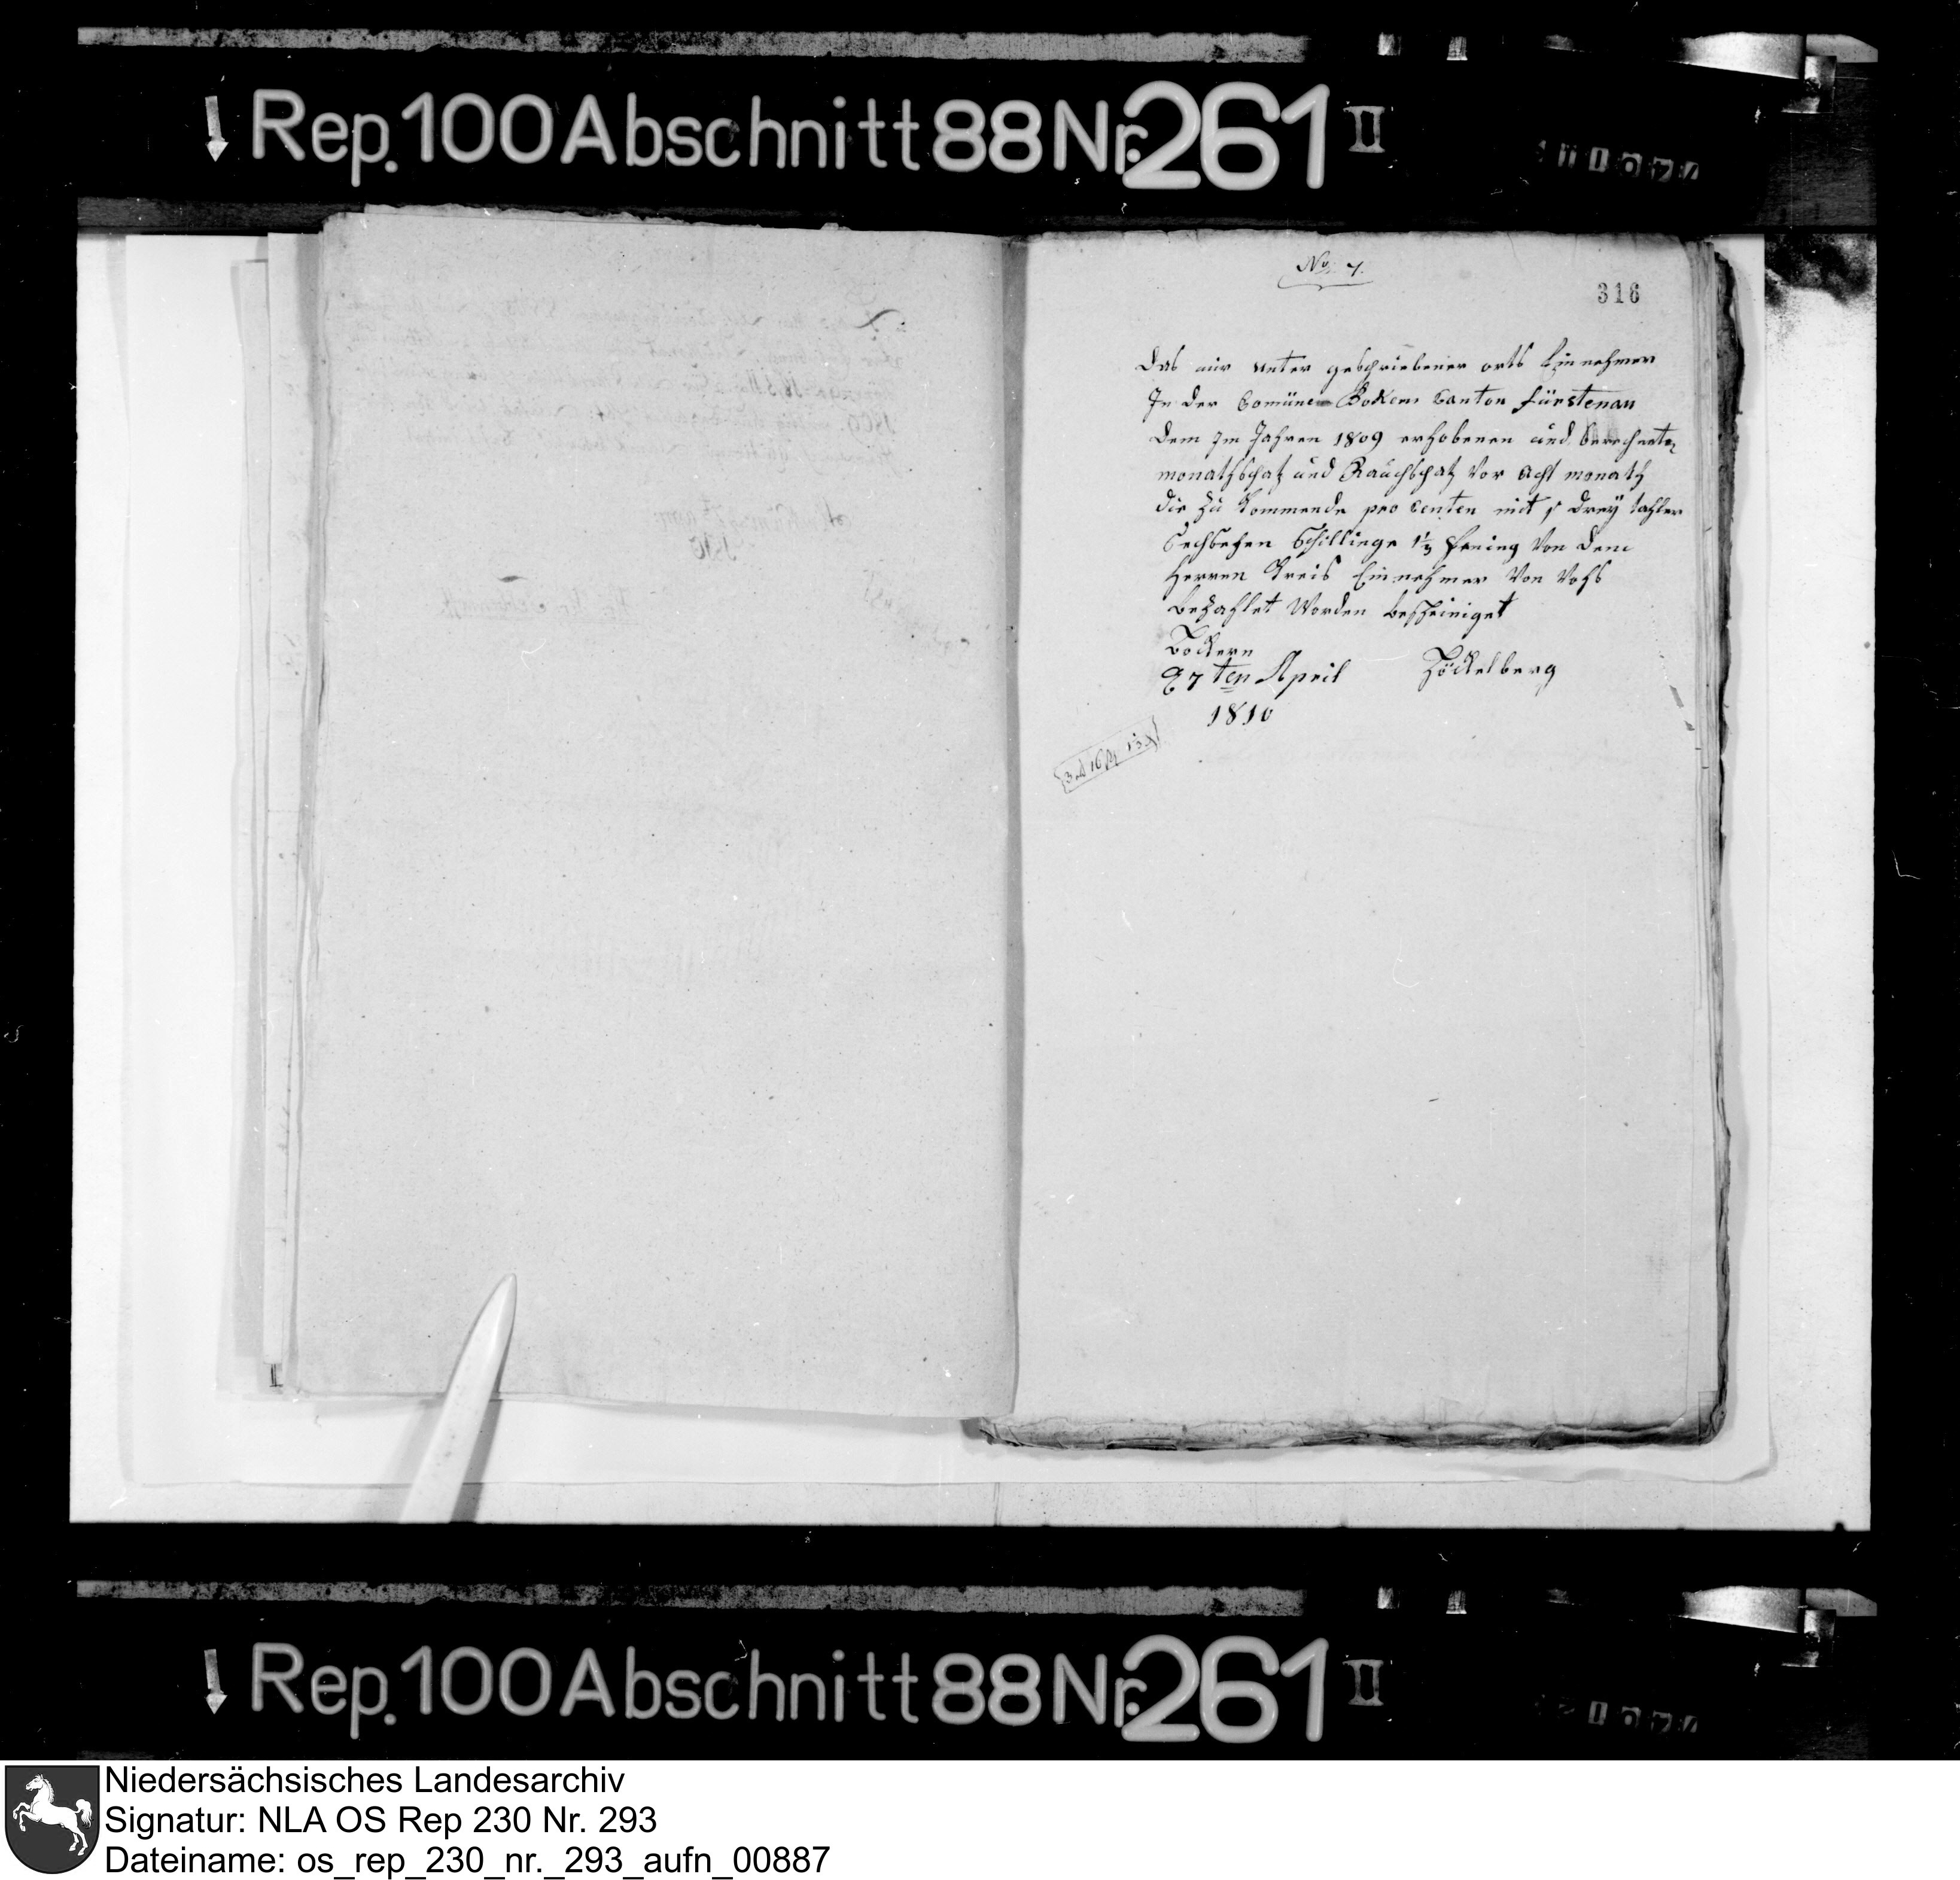 Rep. 100 Abschnitt 88 Nr. 261 II
No. 7.
316
Das mir unter geschriebener orts Einnehmer
In der Comüne Bokern Canton fürstenau
dem Im Jahren 1809 erhobenen und berechneten
monathschatz und Rauchschatz vor acht monath
die zu kommende pro Centen mit drey tahler
Sechsehen Schillinge 1⅓ fening von dem
Herren Kreis Einnehmer Von Voss
bezahlet Worden bescheiniget
Bockern
27ten April Böckelberg
1810
Rep. 100 Abschnitt 88 Nr. 261 II
Niedersächsisches Landesarchiv
Signatur: NLA OS Rep 230 Nr. 293
Dateiname: os_rep_230_nr._293_aufn_00887